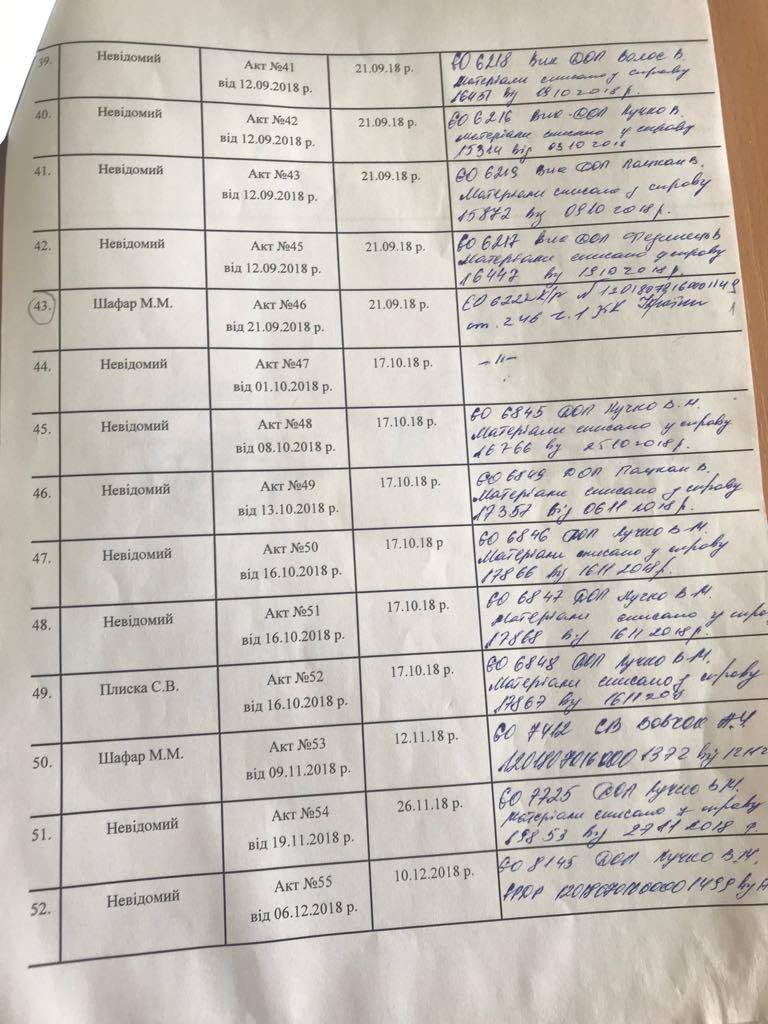 39.
Невідомий
Акт №41
від 12.09.2018 р.
21.09.18 р.
ЄО 6218 Вик ДОП Волос В.
Матеріали списано у справу
16451 від 09 10 2018 р.
40.
Невідомий
Акт №42
від 12.09.2018 р.
21.09.18 р.
ЄО 6216 Вик ДОП Лучко В.
Матеріали списано у справу
15314 від 03 10 2018
41.
Невідомий
Акт №43
від 12.09.2018 р.
21.09.18 р.
ЄО 6219 Вик ДОП Пацкан В.
Матеріали списано у справу
15872 від 09 10 2018 р.
42.
Невідомий
Акт №45
від 12.09.2018 р.
21.09.18 р.
ЄО 6217 Вик ДОП
Матеріали списано у справу
16447 від 19 10 2018 р.
43.
Шафар М.М.
Акт №46
від 21.09.2018 р.
21.09.18 р.
ЄО 6222 К/р №
ст. 246 ч.1 КК України
44.
Невідомий
Акт №47
від 01.10.2018 р.
17.10.18 р.
-"-
45.
Невідомий
Акт №48
від 08.10.2018 р.
17.10.18 р.
ЄО 6845 ДОП Лучко В.М.
Матеріали списано у справу
16766 від 25 10 2018 р.
46.
Невідомий
Акт №49
від 13.10.2018 р.
17.10.18 р.
ЄО 6849 ДОП Пацкан В.
Матеріали списано у справу
17357 від 06 11 2018 р.
47.
Невідомий
Акт №50
від 16.10.2018 р.
17.10.18 р
ЄО 6846 ДОП Лучко В.М.
Матеріали списано у справу
17866 від 16 11 2018 р.
48.
Невідомий
Акт №51
від 16.10.2018 р.
17.10.18 р.
ЄО 6847 ДОП Лучко В.М.
Матеріали списано у справу
17868 від 16 11 2018 р.
49.
Плиска С.В.
Акт №52
від 16.10.2018 р.
17.10.18 р.
ЄО 6848 ДОП Лучко В.М.
Матеріали списано у справу
17867 від 16 11 2018
50.
Шафар М.М.
Акт №53
від 09.11.2018 р.
12.11.18 р.
ЄО 7412 СВ Вовчок
від
51.
Невідомий
Акт №54
від 19.11.2018 р.
26.11.18 р.
ЄО 7725 ДОП Лучко В.М.
Матеріали списано у справу
19853 від 27 11 2018 р.
52.
Невідомий
Акт №55
від 06.12.2018 р.
10.12.2018 р.
ЄО 8145 ДОП Лучко В.М.
ЄРДР